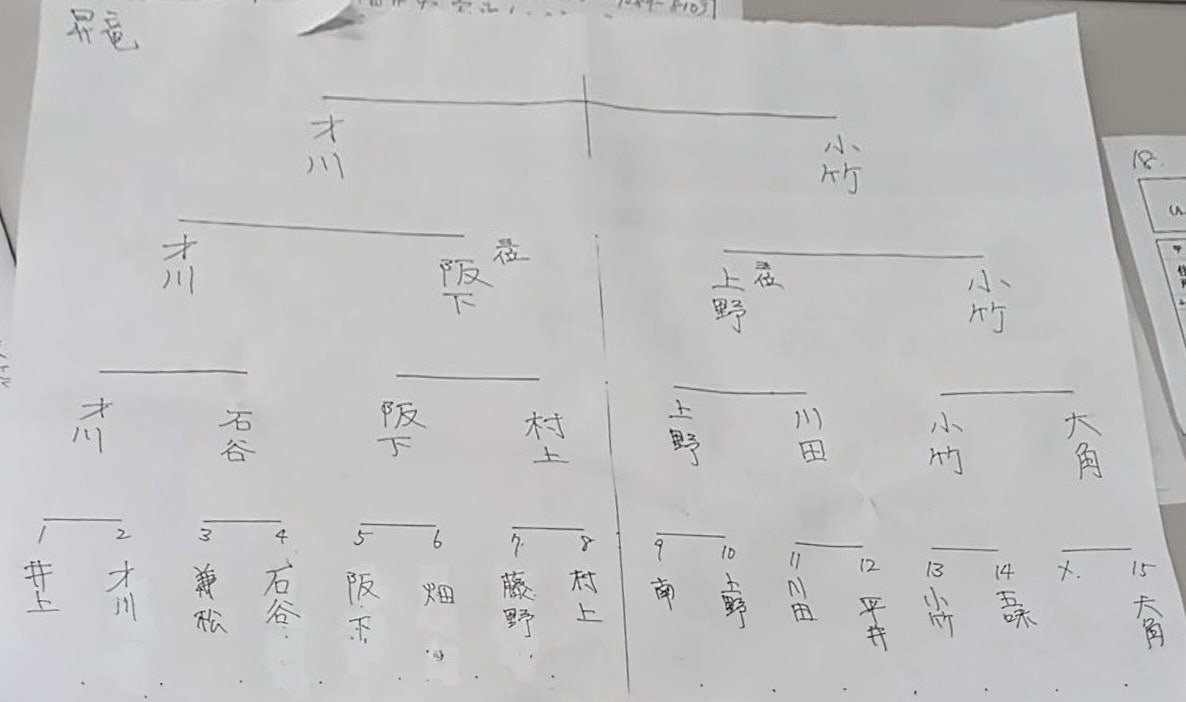 昇竜
才川
小竹
才川
阪下
三位
上野
三位
小竹
才川
石谷
阪下
村上
上野
川田
小竹
大角
1 2 3 4 5 6 7 8 9 10 11 12 13 14 X. 15
井上
才川
兼松
石谷
阪下
畑
藤野
村上
南
上野
川田
平井
小竹
五味
大角
18.